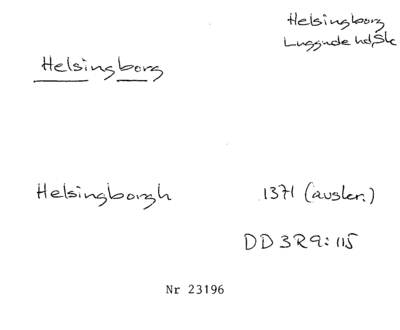 Helsingborg
Luggude hd, Sk
Helsingborg
Helsingborgh 1371 (avskr.)
DD 3R9: 115
Nr 23196